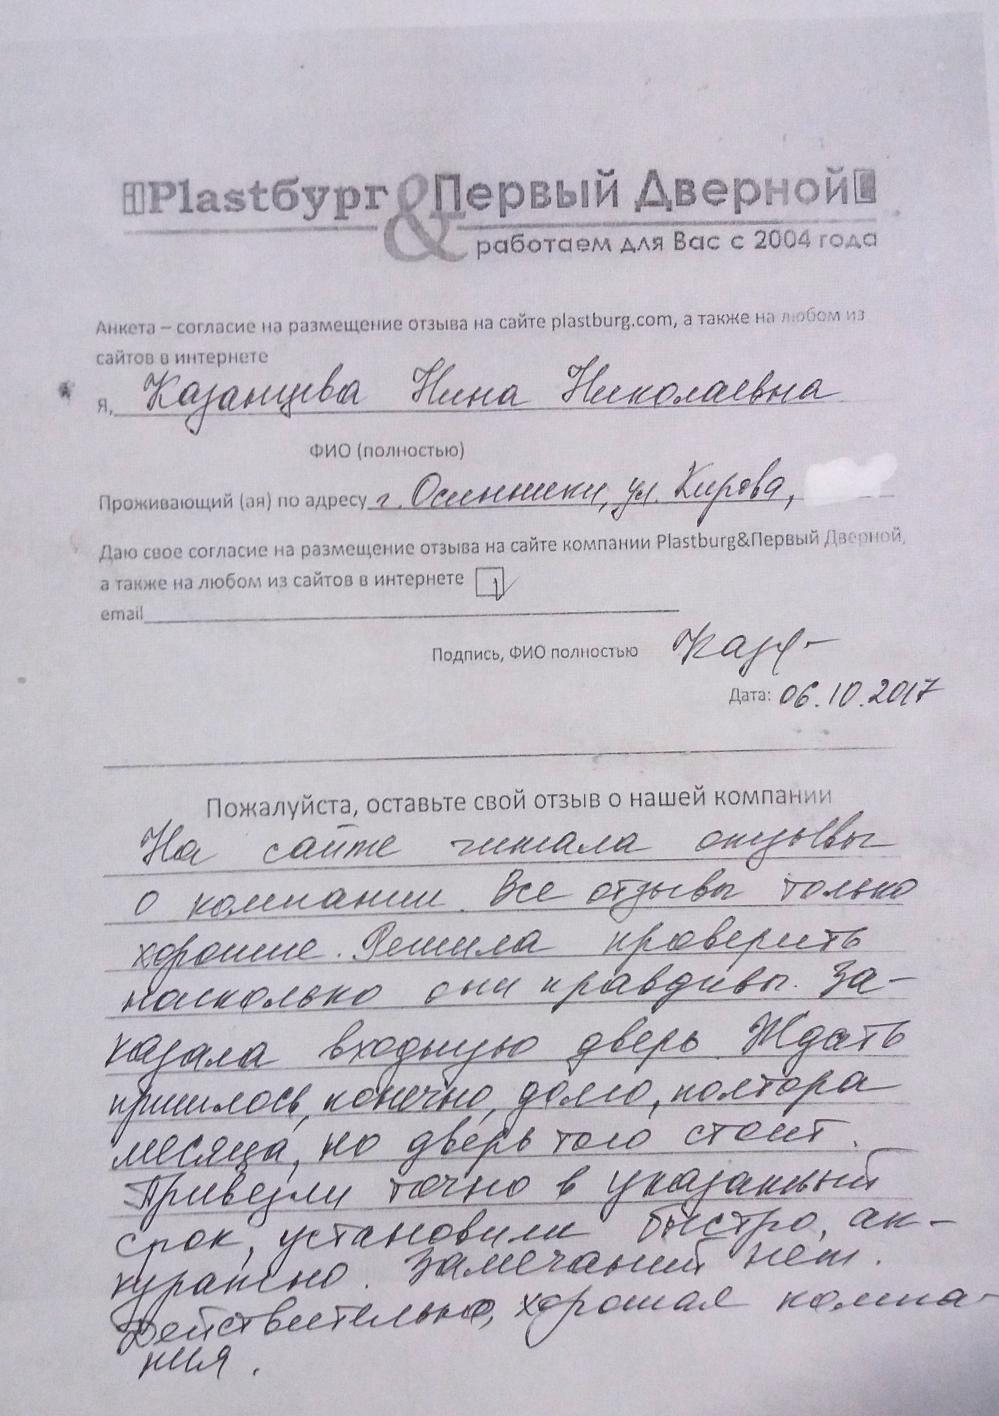 Plastбург & Первый Дверной
работаем для Вас с 2004 года
Анкета – согласие на размещение отзыва на сайте plastburg.com, а также на любом из
сайтов в интернете
Я, Казанцева Нина Николаевна
ФИО (полностью)
Проживающий (ая) по адресу г. Осинники, ул. Кирова,
Даю свое согласие на размещение отзыва на сайте компании Plastburg&Первый Дверной,
а также на любом из сайтов в интернете
email
Подпись, ФИО полностью
Дата: 06.10.2017
Пожалуйста, оставьте свой отзыв о нашей компании
На сайте читала отзывы
о компании. Все отзывы только
хорошие. Решила проверить
насколько они правдивы. За-
казала входную дверь. Ждать
пришлось, конечно, долго, полтора
месяца, но дверь того стоит.
Привезли точно в указанный
срок, установили быстро, ак-
куратно. Замечаний нет.
Действительно, хорошая компа-
ния.